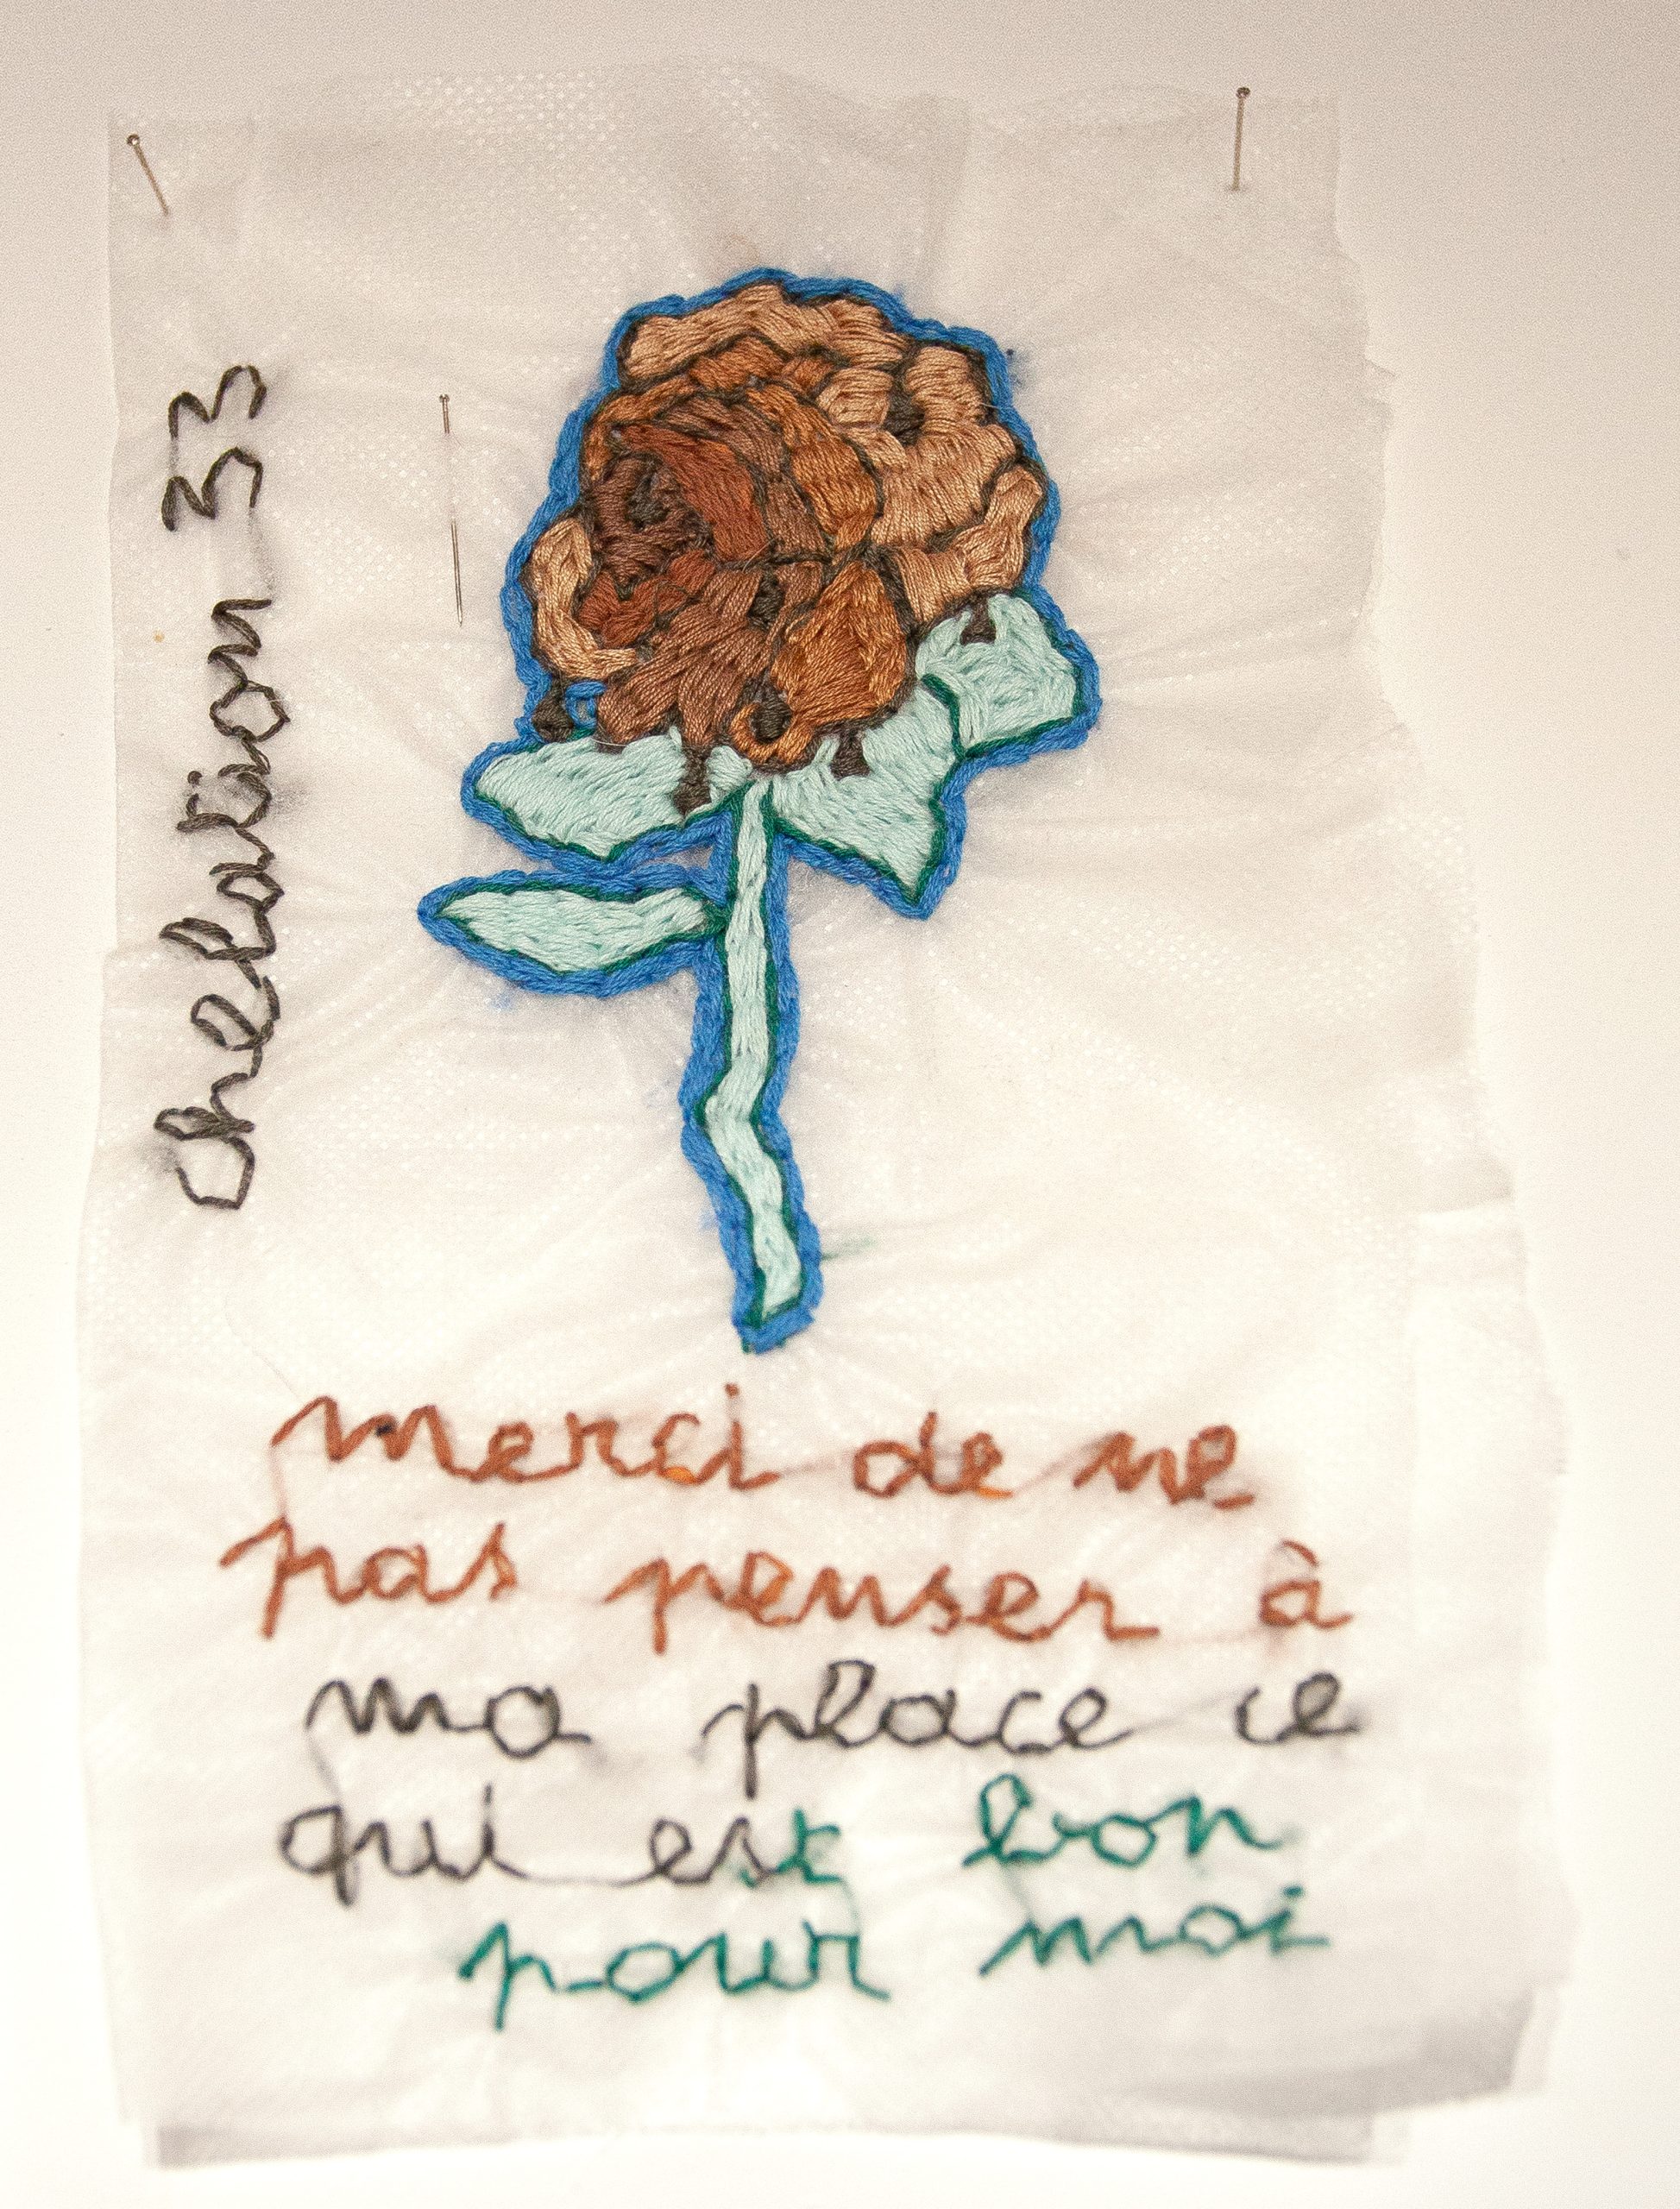 chélation 33
merci de ne
pas penser à
ma place ce
qui est bon
pour moi